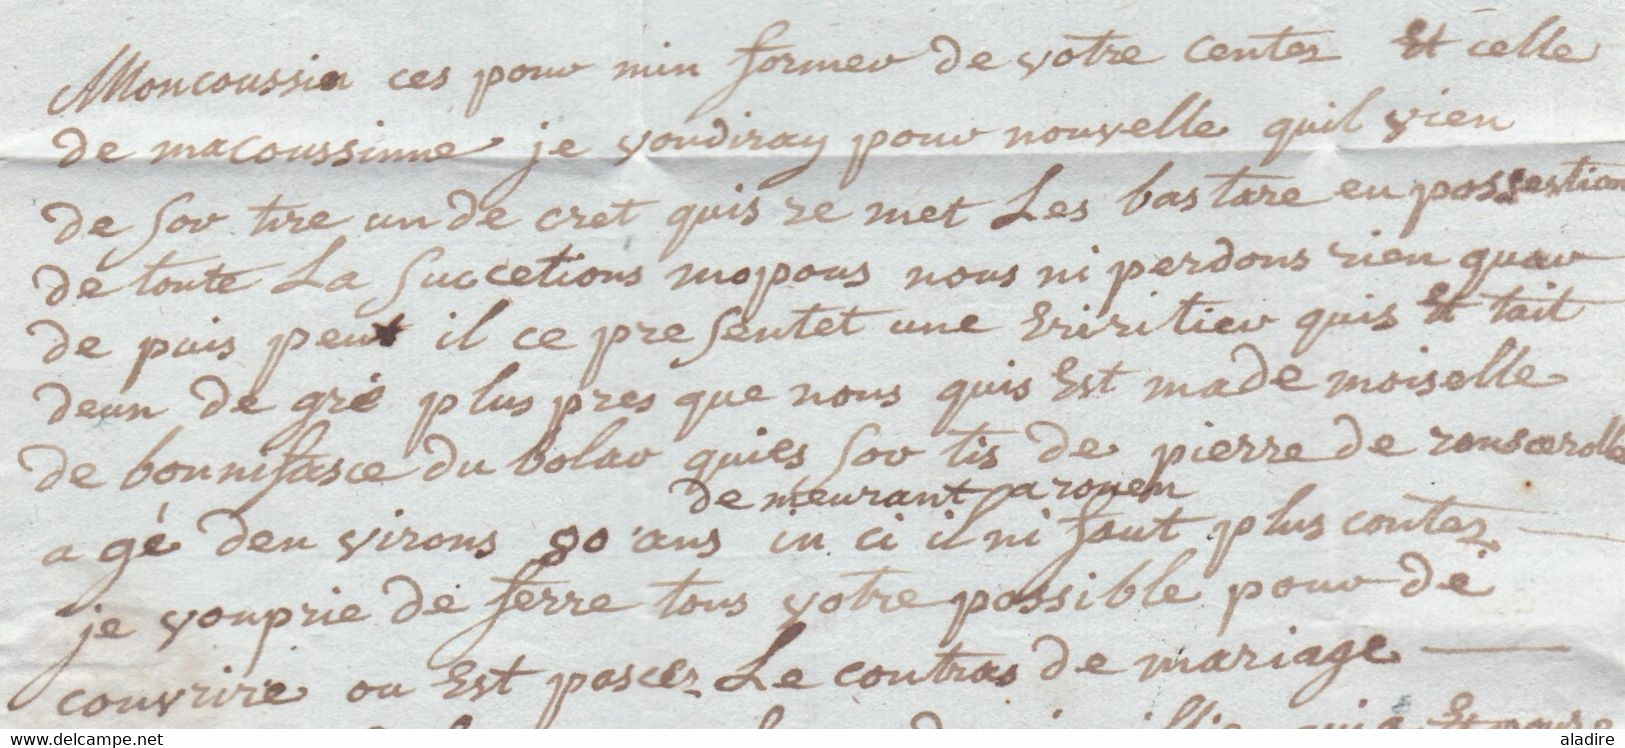 Moncoussin ces pour min former de votre centez Et celle
de macoussinne je voudiray pour nouvelle quil vien
de sor tire un de cret quis re met Les bastare en possestion
de toute La succetions mopous nous ni perdons rien quar
de puis peut il ce presentet une Eriritier quis Et tait
deun de gré plus pres que nous quis Est made moiselle
de bonnifasce du bolar quies sor tis de pierre de ronscerolle
de meurant a rouen
agé den virons 80 ans in ci il ni faut plus contez
je vouprie de ferre tous votre possible pour dé
couvrire ou Est pascez Le contras de mariage
aladire
www.delcampe.net